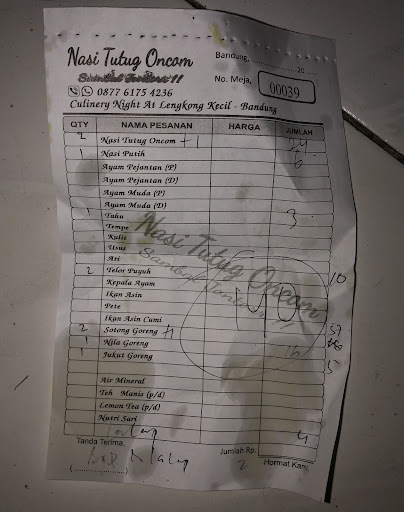 Nasi Tutug Oncom
Bandung, ............ 20 ....
0877 6175 4236
No. Meja, 00039
Culinery Night At Lengkong Kecil - Bandung
QTY NAMA PESANAN HARGA JUMLAH
2 Nasi Tutug Oncom +1
1 Nasi Putih 6
Ayam Pejantan (P)
Ayam Pejantan (D)
Ayam Muda (P)
Ayam Muda (D)
1 Tahu 3
Tempe
Kulit
Usus
Ati
2 Telor Puyuh 10
Kepala Ayam
Ikan Asin
Pete
Ikan Asin Cumi
2 Sotong Goreng +1
1 Nila Goreng
1 Jukut Goreng 5
Air Mineral
Teh Manis (p/d)
Lemon Tea (p/d)
Nutri Sari
Nasi Tutug Oncom
Tanda Terima, Jumlah Rp. Hormat Kami,
(..................)